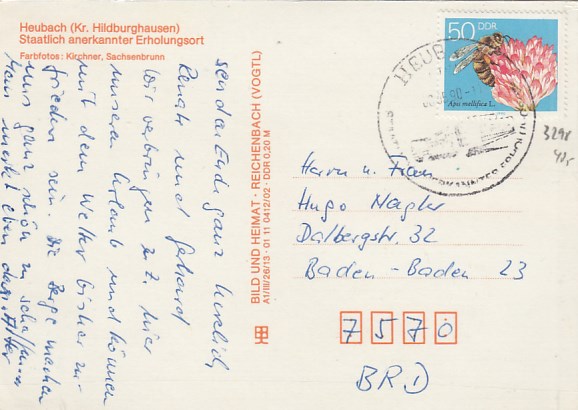 Heubach (Kr. Hildburghausen)
Staatlich anerkannter Erholungsort
Farbfotos: Kirchner, Sachsenbrunn
senden Euch ganz herzlich
Renate und Gerhard
Wir verbringen z. Z. hier
unseren Urlaub und können
mit dem Wetter bisher zu-
frieden sein. Die Berge machen
uns ganz schön zu schaffen
Man merkt eben das Alter
BILD UND HEIMAT · REICHENBACH (VOGTL)
A1/III/26/13 · 01 11 0412/02 · DDR 0,20 M
50 DDR
Apis mellifica L.
HEUB
90
ANERKANNTER ERHOL
3298
40,-
Herrn u. Frau
Hugo Nagler
Dalbergstr. 32
Baden-Baden 23
7570
BRD